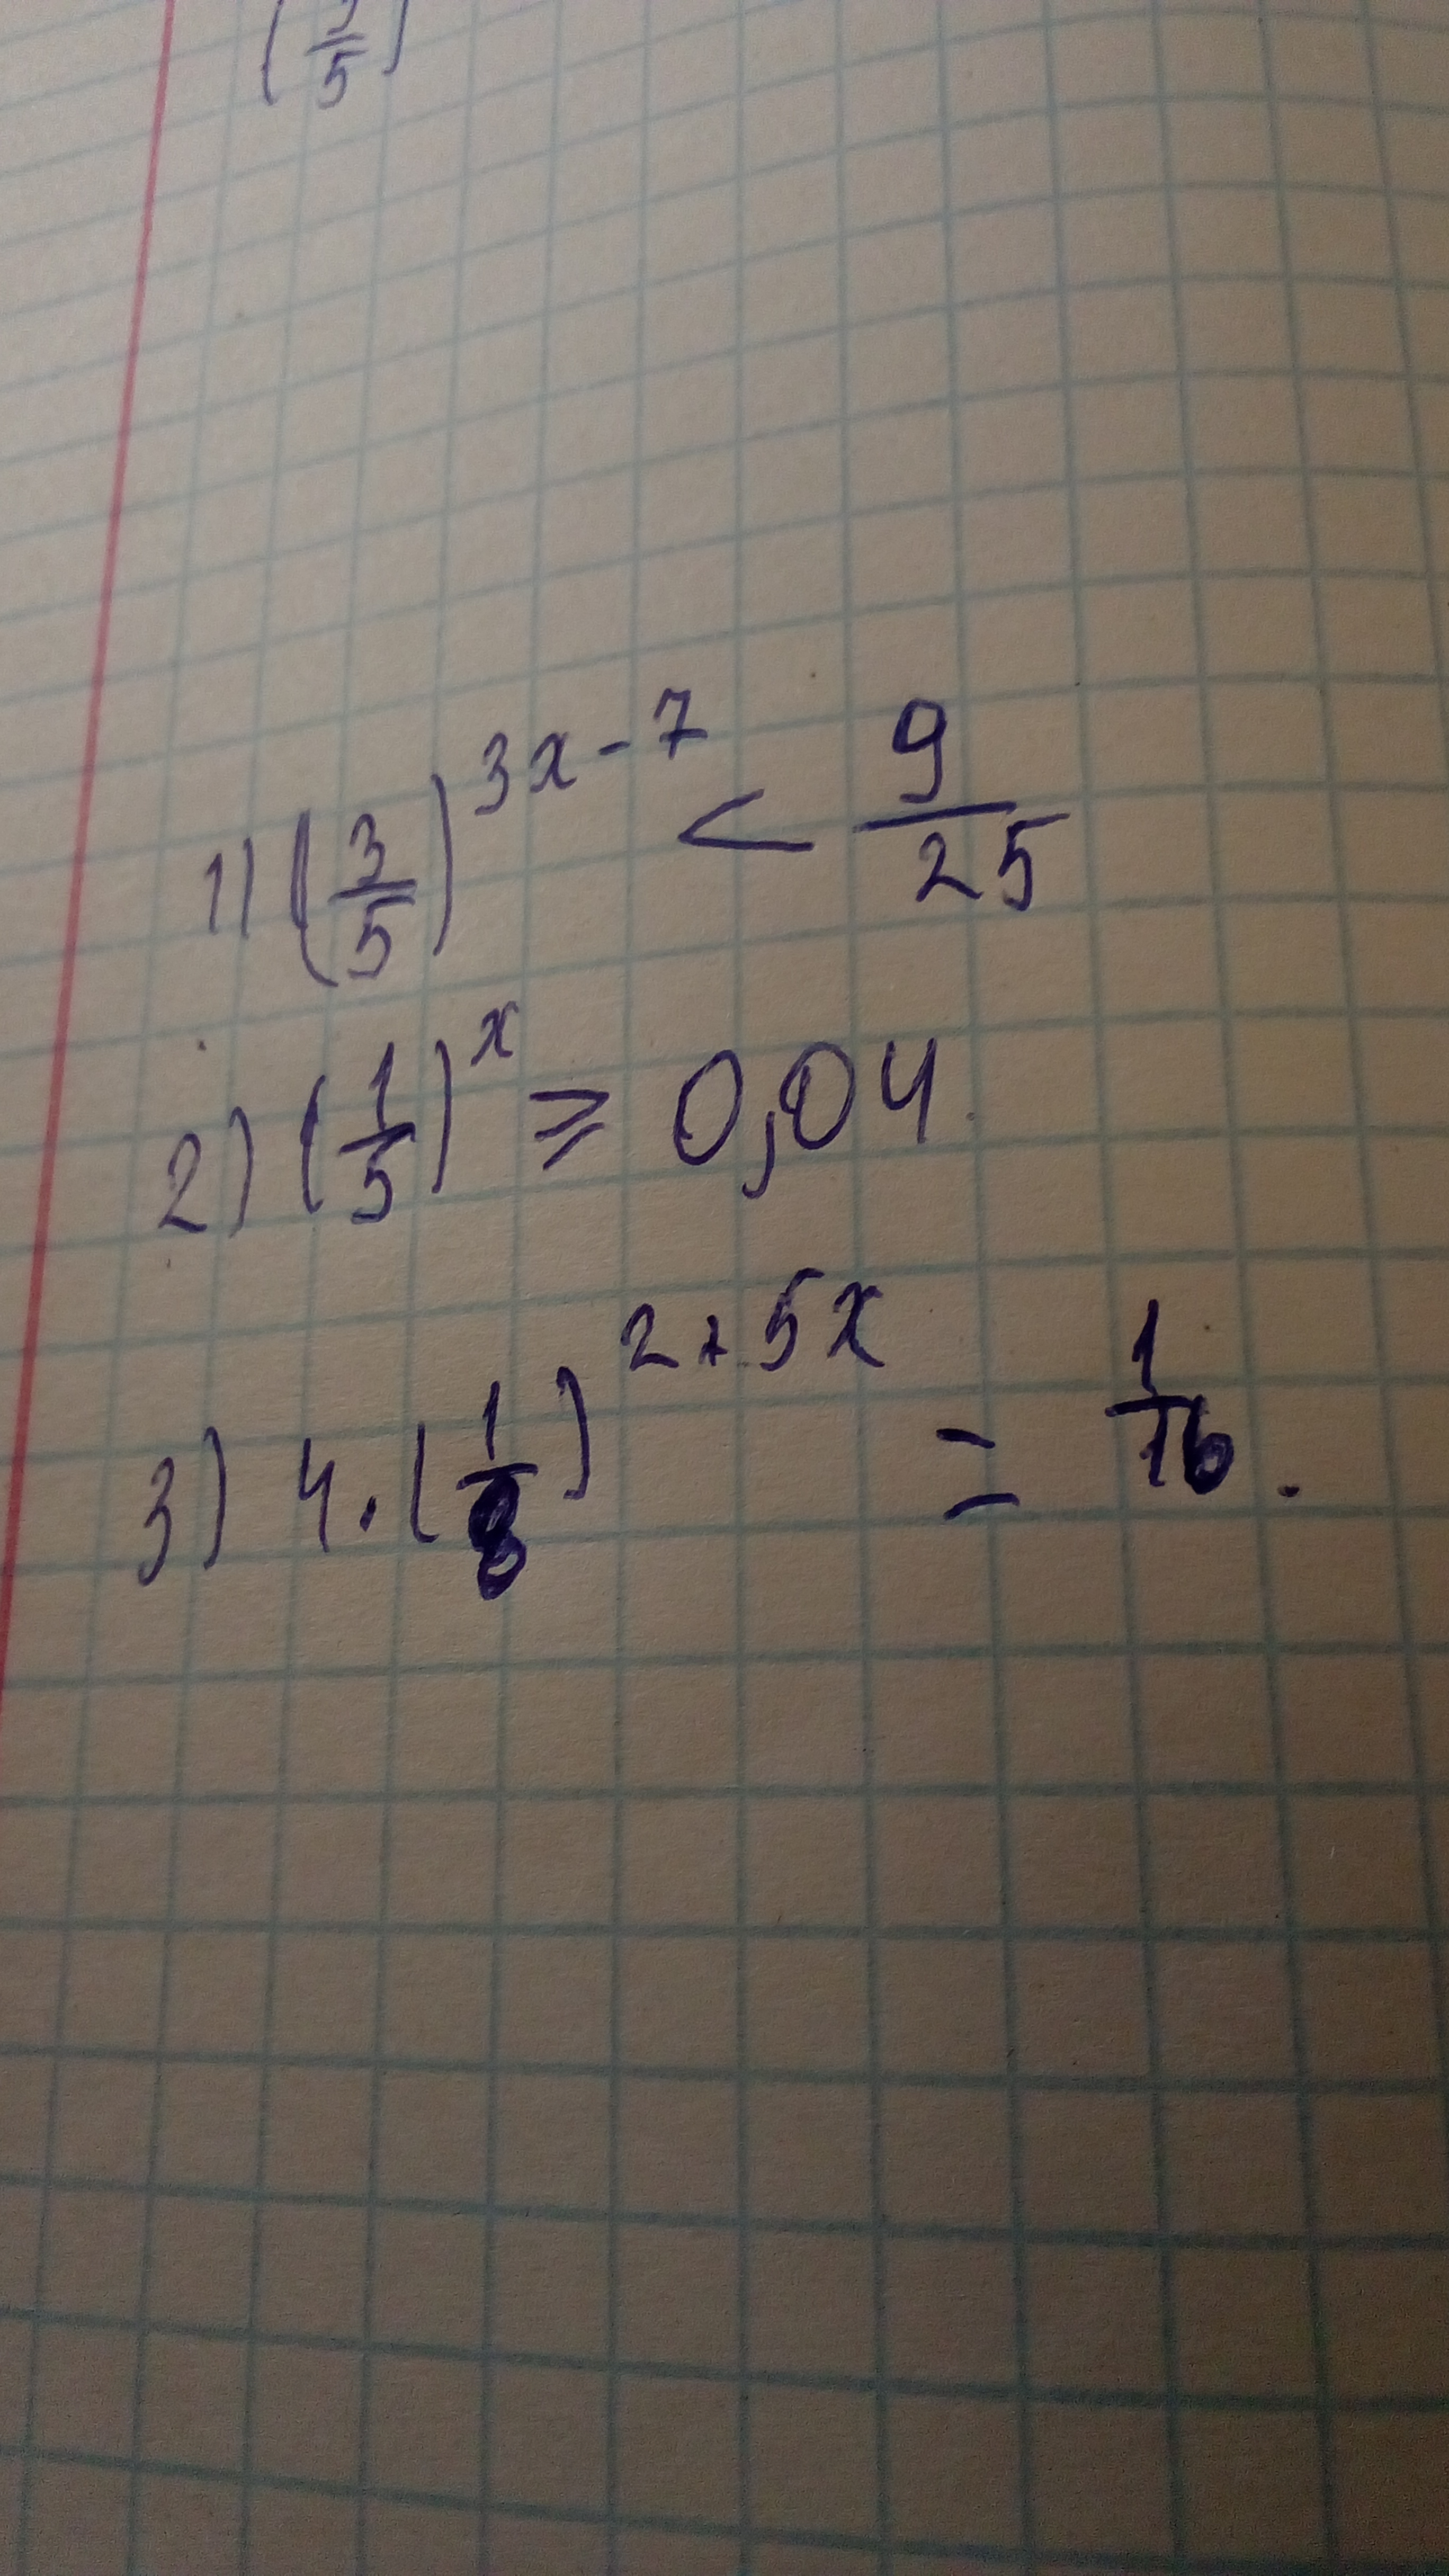 1) (3/5)^(3x-7) < 9/25
2) (1/5)^x ≥ 0,04
3) 4·(1/8)^(2+5x) = 1/16.